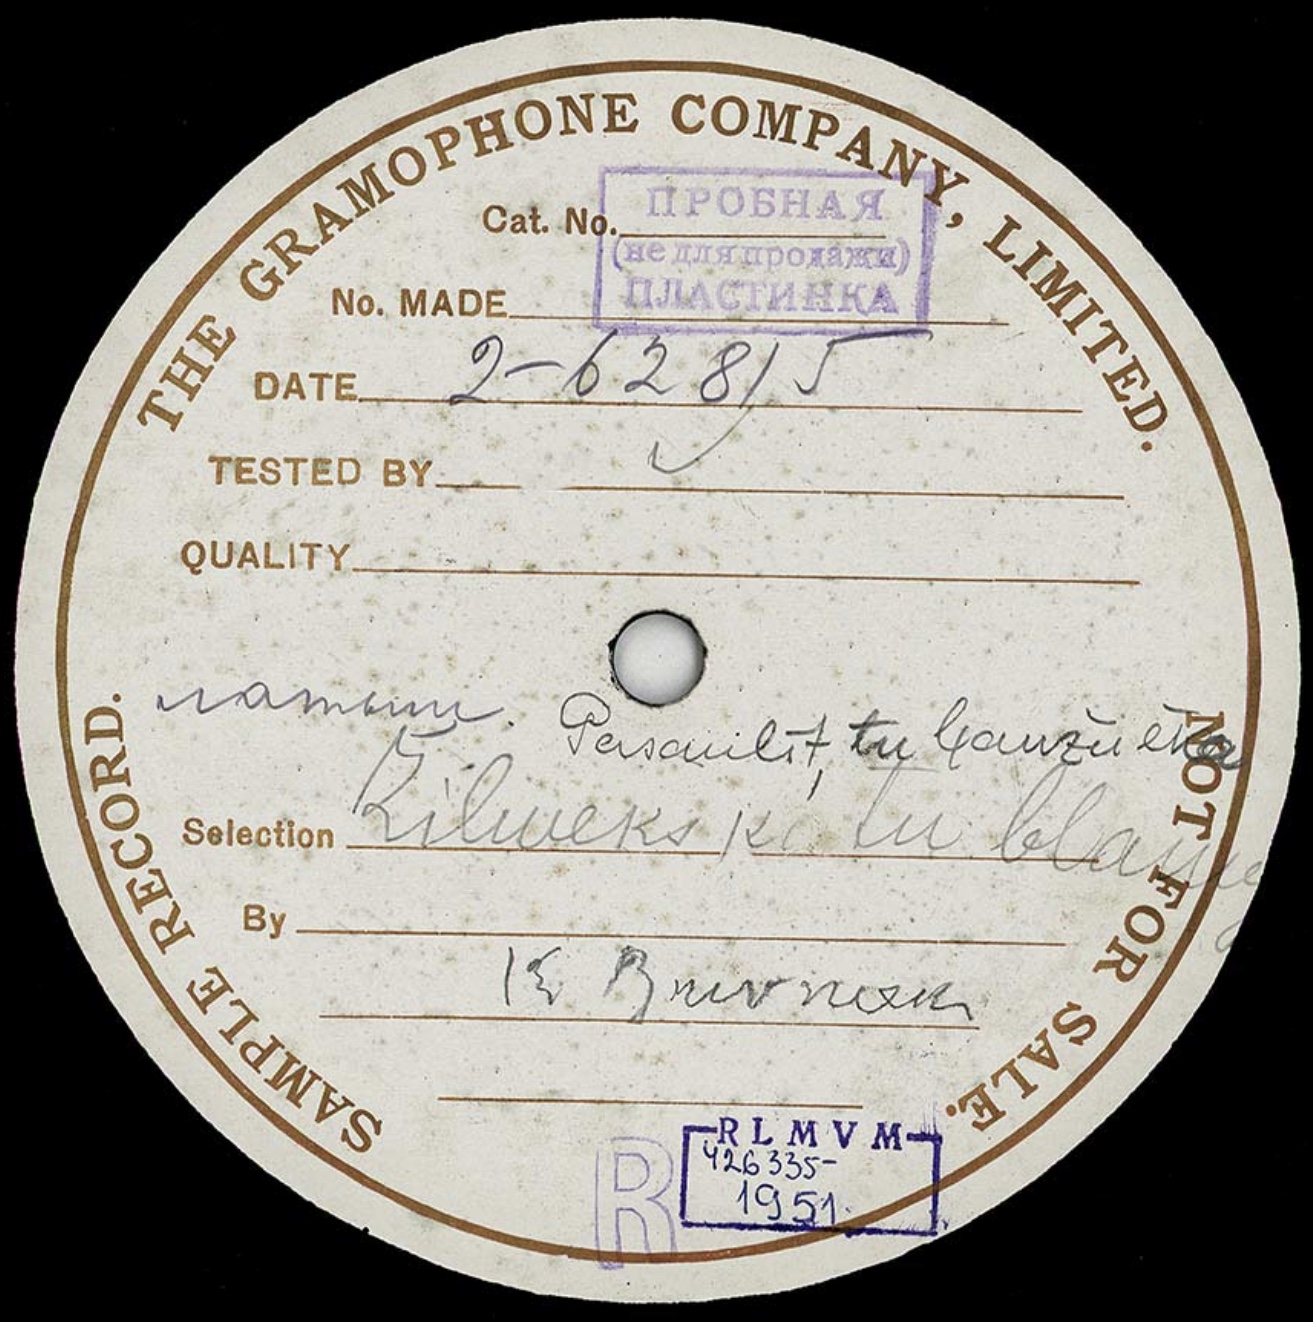 THE GRAMOPHONE COMPANY, LIMITED.
ПРОБНАЯ
(не для продажи)
ПЛАСТИНКА
Cat. No.
No. MADE
DATE 2-62815
TESTED BY
QUALITY
латыш.
tu
Selection tu
By
K
SAMPLE RECORD.
NOT FOR SALE.
R
RLMVM
426335-
1951.